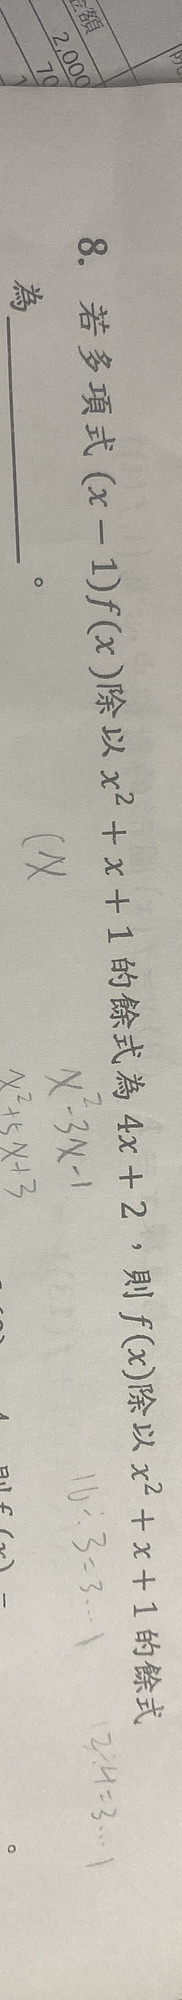 金額
2,000
70
8. 若多項式(x－1)f(x)除以x²＋x＋1的餘式為4x＋2，則f(x)除以x²＋x＋1的餘式
為________。
(x
x²-3x-1
x²+5x+3
10÷3=3…1
13÷4=3…1
則f(x)=
。